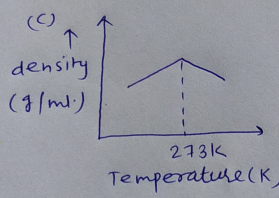 (C)
density
(g/ml.)
273K
Temperature(K